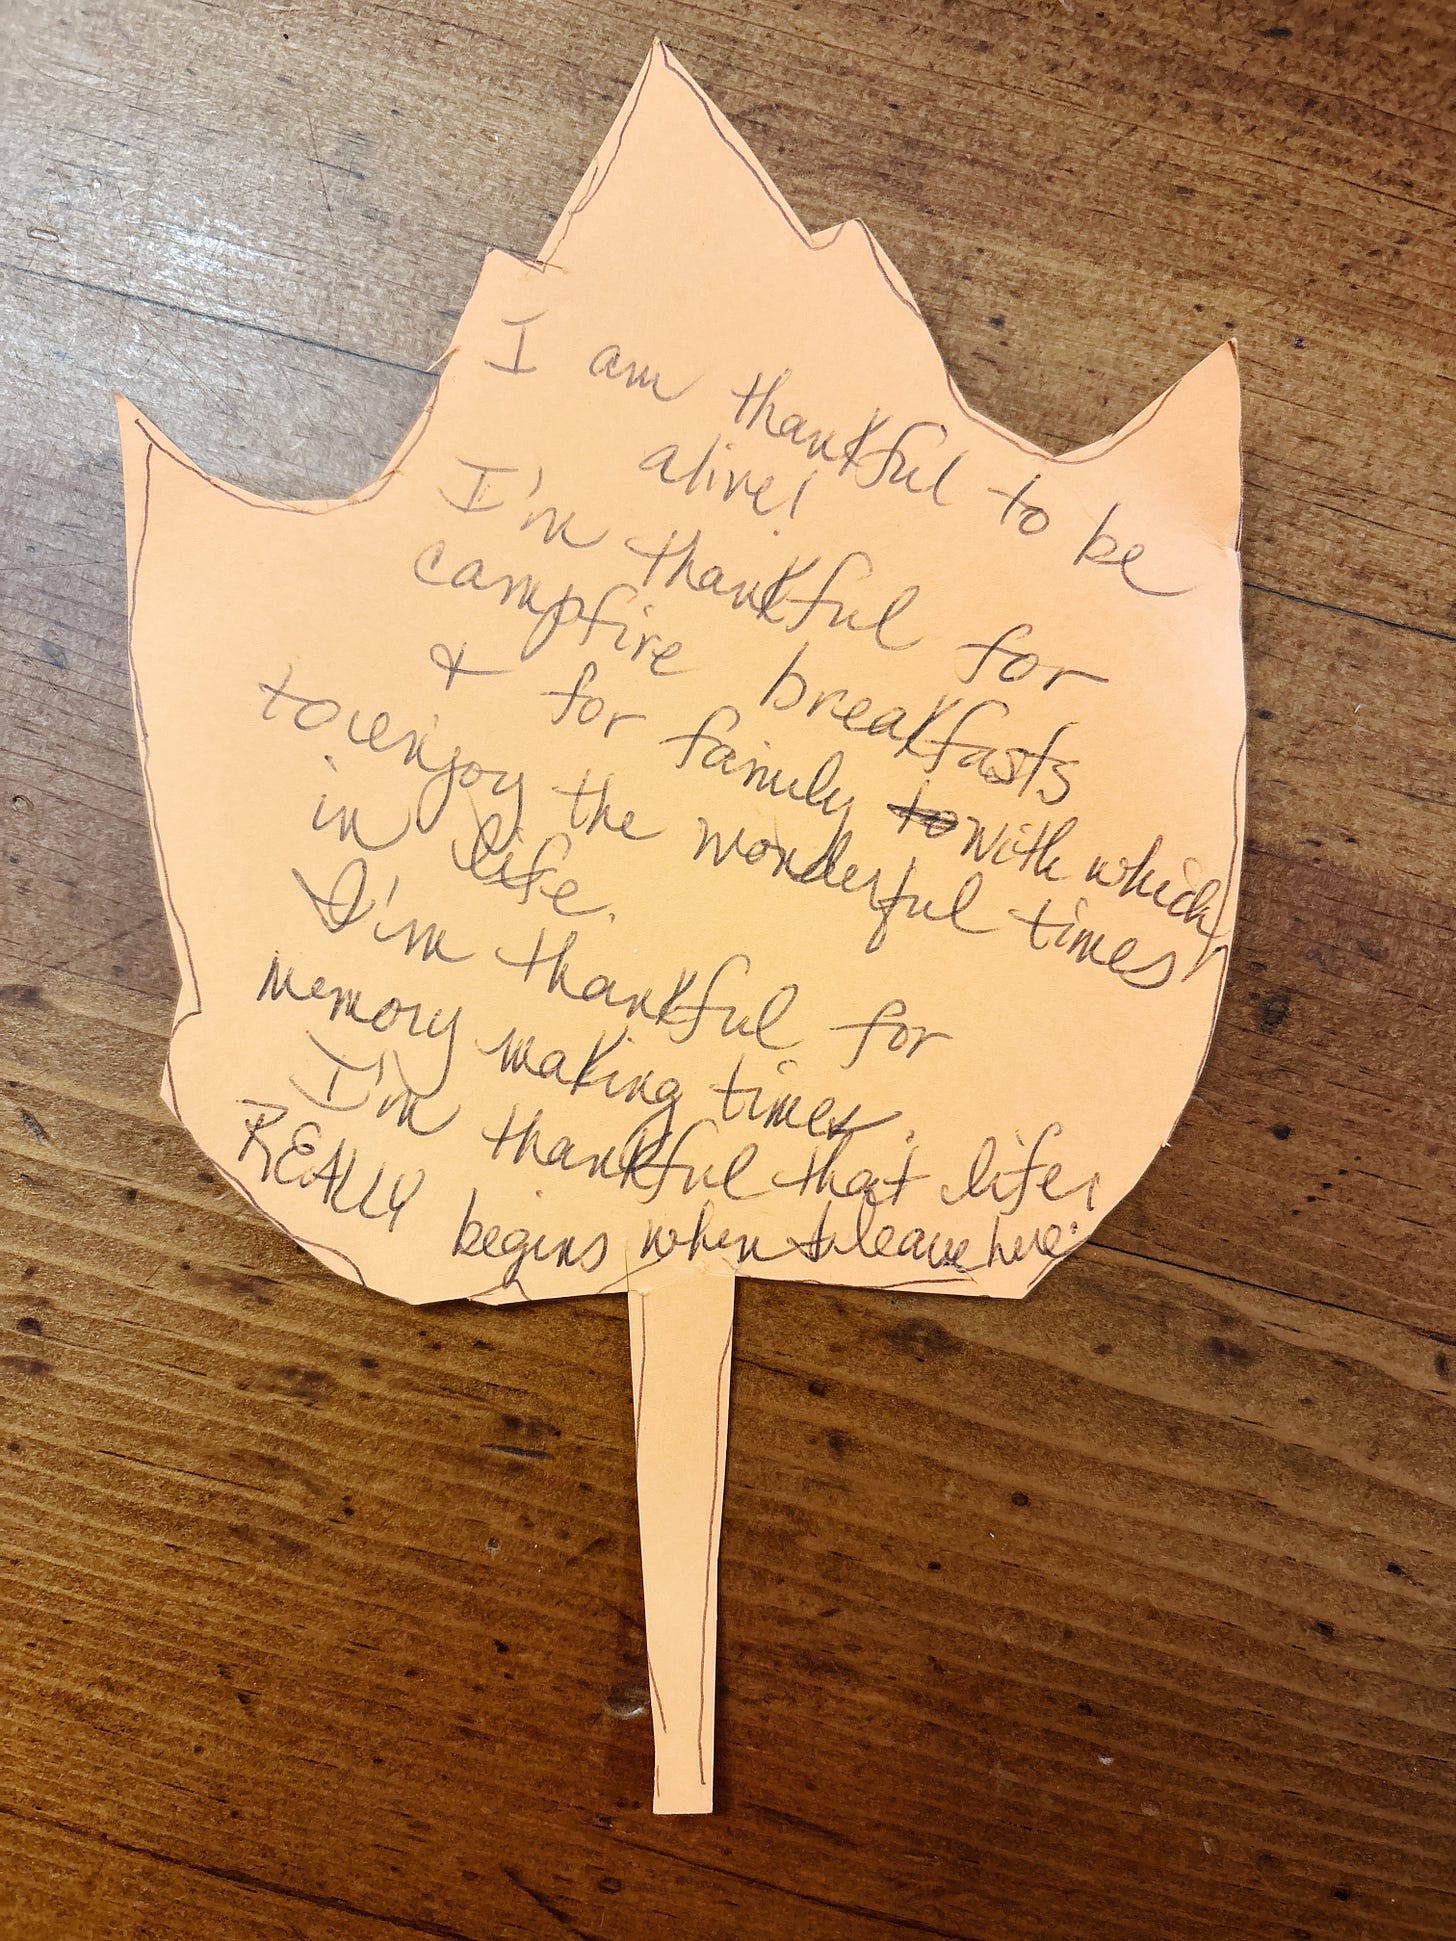 I am thankful to be
alive!
I'm thankful for
campfire breakfasts
& for family to with which
to enjoy the wonderful times
in life.
I'm thankful for
memory making times.
I'm thankful that life
REALLY begins when I leave here.